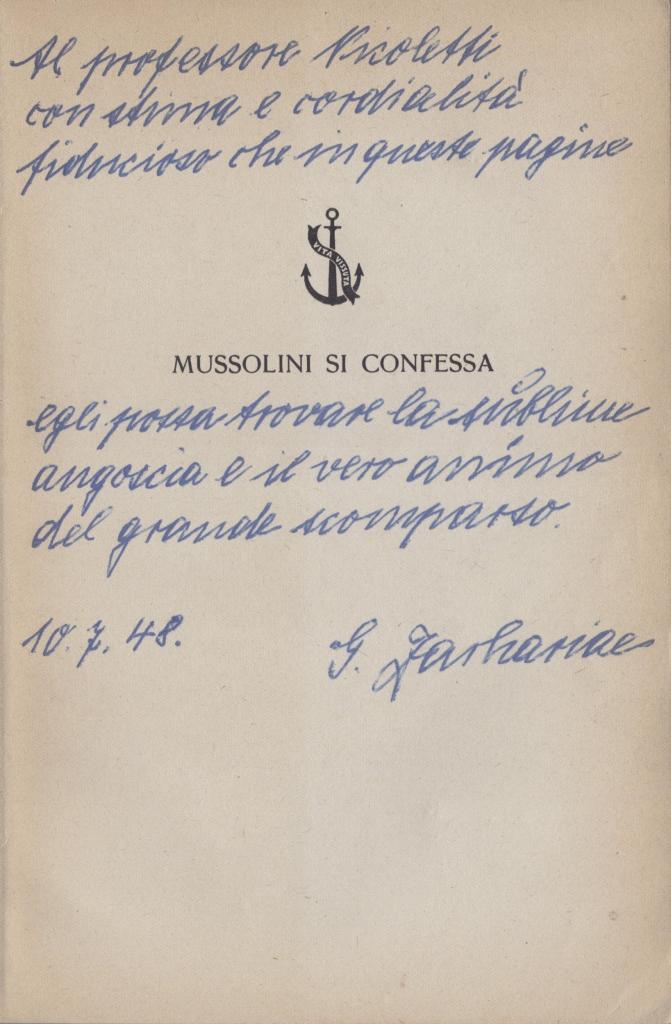 Al professore Nicoletti
con stima e cordialità
fiducioso che in queste pagine
VITA VISSUTA
MUSSOLINI SI CONFESSA
egli possa trovare la sublime
angoscia e il vero animo
del grande scomparso.
10.7.48.
G. Zachariae